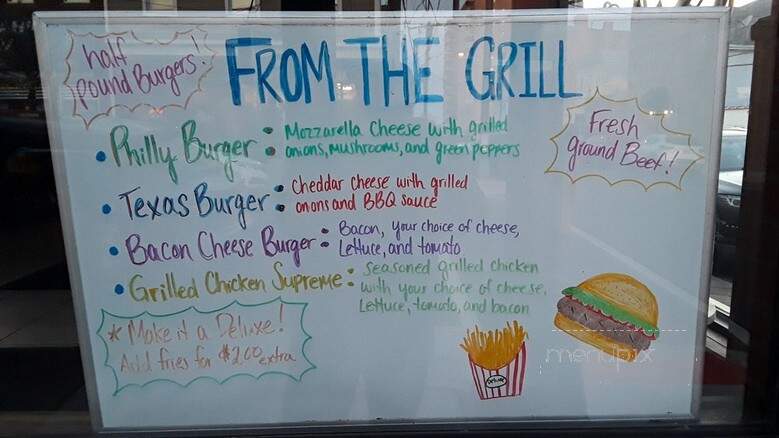 half
pound Burgers!
FROM THE GRILL
Fresh
ground Beef!
• Philly Burger : Mozzarella Cheese with grilled
onions, mushrooms, and green peppers
• Texas Burger : Cheddar cheese with grilled
onons and BBQ sauce
• Bacon Cheese Burger : Bacon, your choice of cheese,
Lettuce, and tomato
• Grilled Chicken Supreme : Seasoned grilled chicken
with your choice of cheese,
Lettuce, tomato, and bacon
* Make it a Deluxe!
Add fries for $2.00 extra
menupix